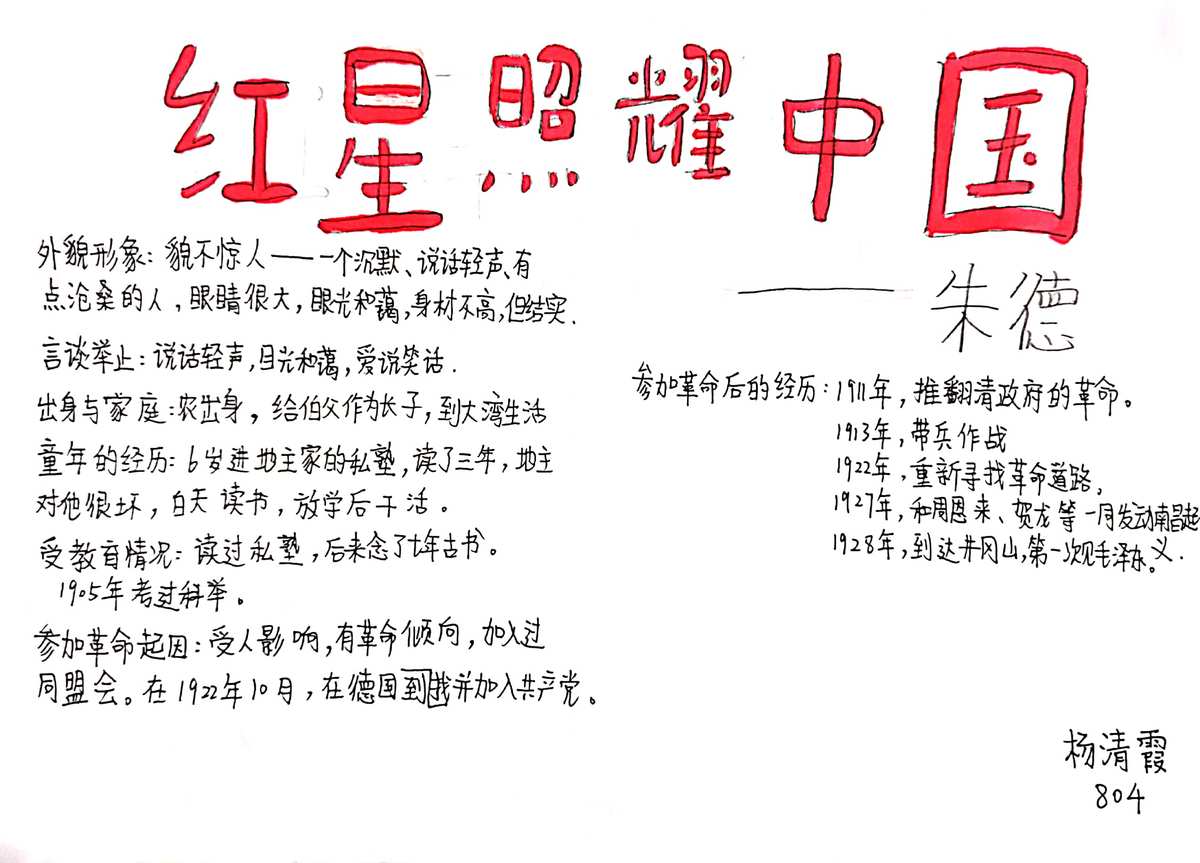 红星照耀中国
——朱德
外貌形象：貌不惊人——一个沉默、说话轻声、有
点沧桑的人，眼睛很大，眼光和蔼，身材不高，但结实.
言谈举止：说话轻声，目光和蔼，爱说笑话.
出身与家庭：农出身，给伯父作为长子，到大湾生活
童年的经历：6岁进地主家的私塾，读了三年，地主
对他很坏，白天读书，放学后干活。
受教育情况：读过私塾，后来念了七年古书。
1905年考过科举。
参加革命起因：受人影响，有革命倾向，加入过
同盟会。在1922年10月，在德国到我并加入共产党。
参加革命后的经历：1911年，推翻清政府的革命。
1913年，带兵作战
1922年，重新寻找革命道路，
1927年，和周恩来、贺龙等一同发动南昌起
义.
1928年，到达井冈山，第一次见毛泽东。
杨清霞
804